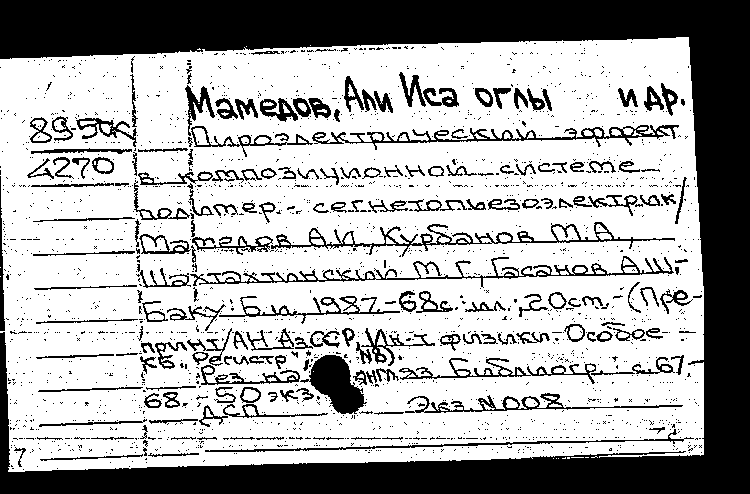 Мамедов, Али Иса оглы и др.
89-50К
Пироэлектрический эффект
4270
в композиционной системе
полимер - сегнетопьезоэлектрик/
Мамедов А.И., Курбанов М.А.,
Шахтахтинский М.Г., Гасанов А.Ш.-
Баку: Б.и, 1987.-68с.: ил.; 20 ст.-(Пре-
принт/АН АзССР, Ин-т физики. Особое
КБ „Регистр"; N8).
Рез. на англ. яз. Библиогр.: с. 67.-
68. - 50 экз.
ДСП Экз. N 008
7